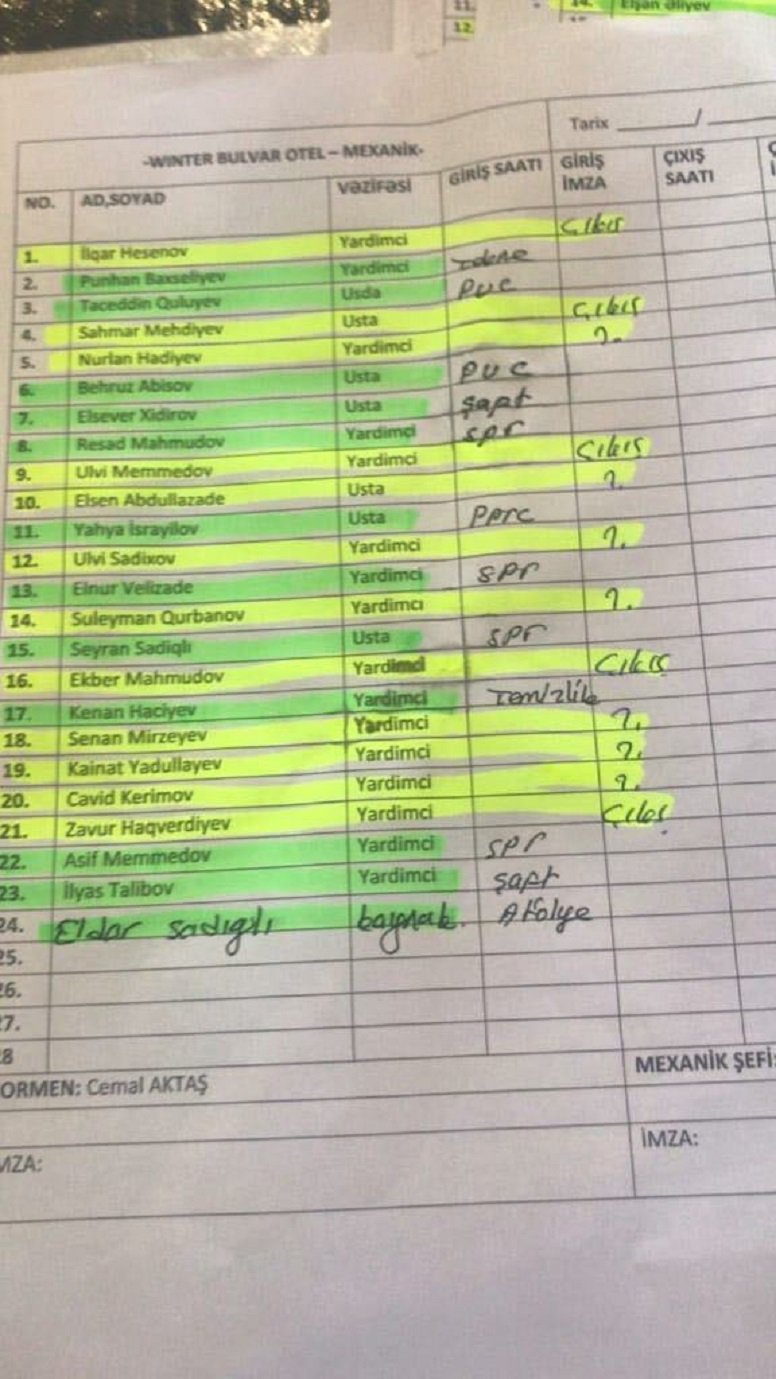 11.
12.
14. Elşən Əliyev
-WINTER BULVAR OTEL – MEXANİK-
Tarix ______/______
NO. AD,SOYAD VƏZİFƏSİ GİRİŞ SAATI GİRİŞ İMZA ÇIXIŞ SAATI
1. İlqar Hesenov Yardimci Çıkış
2. Punhan Baxseliyev Yardimci
3. Taceddin Quluyev Usda PVC
4. Sahmar Mehdiyev Usta Çıkış
5. Nurlan Hadiyev Yardimci ?.
6. Behruz Abisov Usta PVC
7. Elsever Xidirov Usta şapt
8. Resad Mahmudov Yardimçi spr
9. Ulvi Memmedov Yardimci Çıkış
10. Elsen Abdullazade Usta ?.
11. Yahya İsrayilov Usta pprc
12. Ulvi Sadixov Yardimci ?.
13. Elnur Velizade Yardimci spr
14. Suleyman Qurbanov Yardimci ?.
15. Seyran Sadiqlı Usta spr
16. Ekber Mahmudov Yardimci Çıkış
17. Kenan Haciyev Yardimci Temizlik
18. Senan Mirzeyev Yardimci ?.
19. Kainat Yadullayev Yardimci ?.
20. Cavid Kerimov Yardimci ?.
21. Zavur Haqverdiyev Yardimci Çıkış
22. Asif Memmedov Yardimci spr
23. İlyas Talibov Yardimci şapt
24. Eldar sadıgılı kaynak. Atolye
25.
26.
27.
28
FORMEN: Cemal AKTAŞ
MEXANİK ŞEFİ:
İMZA:
İMZA: